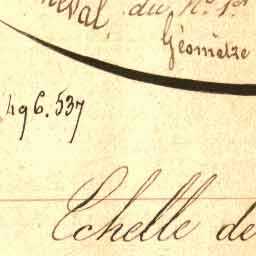 du N° 1er
Géomètre
496.537
Echelle de